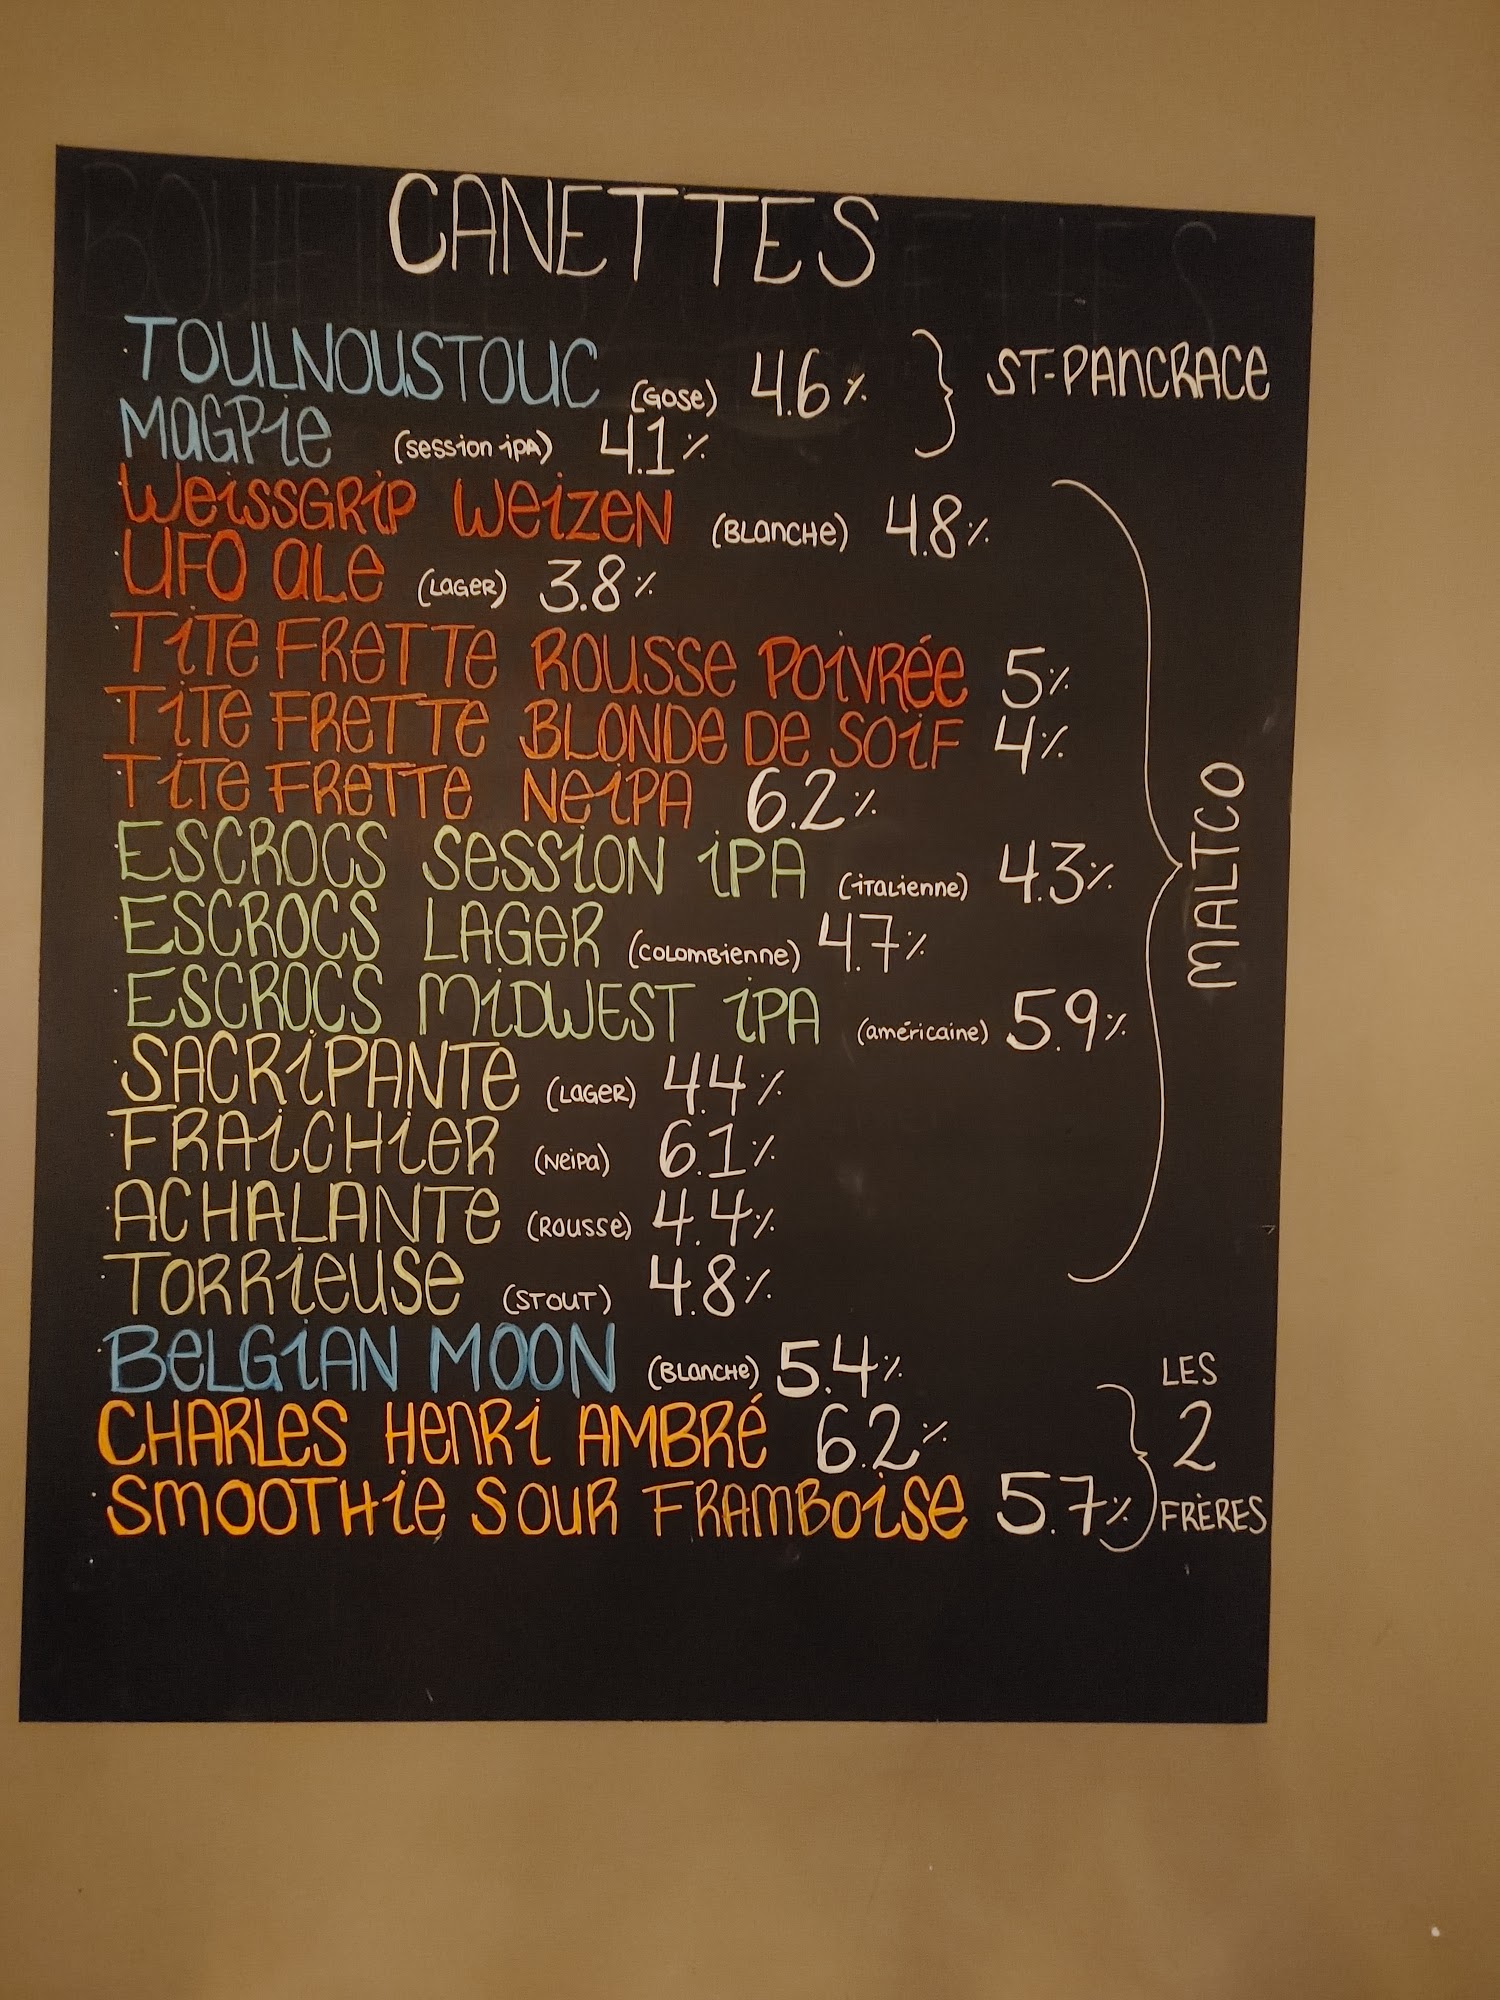 CANETTES
TOULNOUSTOUC (GOSE) 4.6% } ST-PANCRACE
MAGPIE (SESSION IPA) 4.1%
WEISSGRIP WEIZEN (BLANCHE) 4.8%
UFO ALE (LAGER) 3.8%
TITE FRETTE ROUSSE POIVRÉE 5%
TITE FRETTE BLONDE DE SOIF 4%
TITE FRETTE NEIPA 6.2%
ESCROCS SESSION IPA (ITALIENNE) 4.3%
MALTCO
ESCROCS LAGER (COLOMBIENNE) 4.7%
ESCROCS MIDWEST IPA (AMÉRICAINE) 5.9%
SACRIPANTE (LAGER) 4.4%
FRAICHIER (NEIPA) 6.1%
ACHALANTE (ROUSSE) 4.4%
TORRIEUSE (STOUT) 4.8%
BELGIAN MOON (BLANCHE) 5.4%
LES
CHARLES HENRI AMBRÉ 6.2%
2
SMOOTHIE SOUR FRAMBOISE 5.7%
FRÈRES